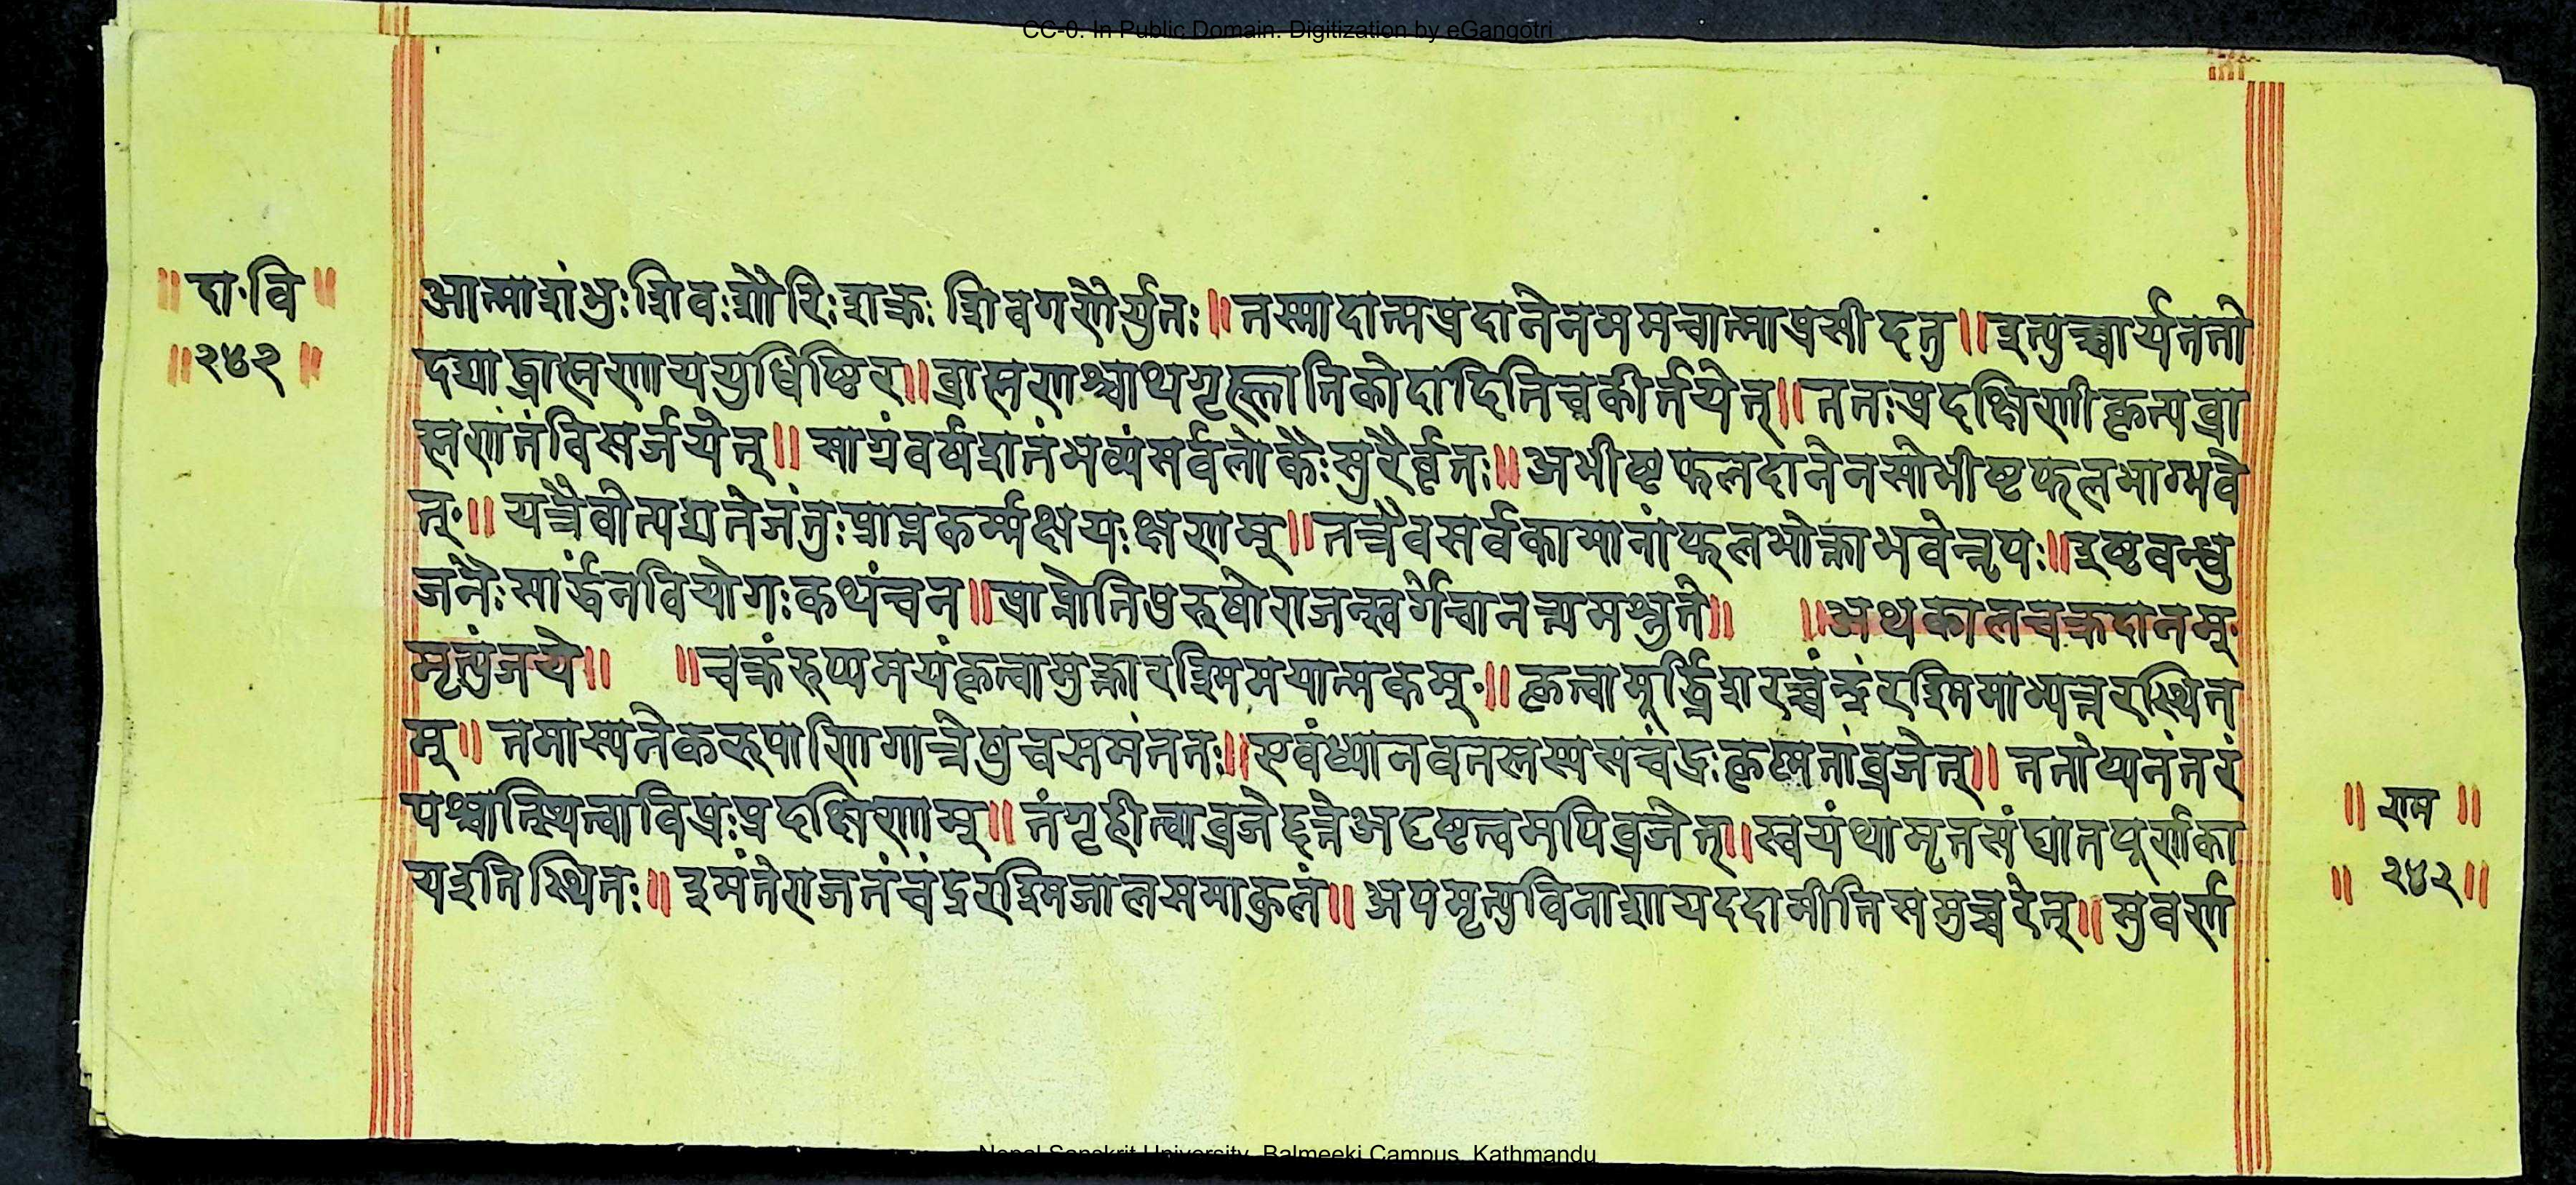 CC-0. In Public Domain. Digitization by eGangotri
॥ दा॰वि ॥
॥ २४२ ॥
आत्माशंभुः शिवः शौरिः शक्रः शिवगणैर्युतः ॥ तस्मादात्मप्रदानेनममचात्माप्रसीदतु ॥ इत्युच्चार्यततो
दद्याद्ब्राह्मणाययुधिष्ठिर ॥ ब्राह्मणश्चाथगृह्णातिकोदादितिचकीर्तयेत् ॥ ततःप्रदक्षिणीकृत्यब्रा
ह्मणंतंविसर्जयेत् ॥ साग्रंवर्षशतंभव्यंसर्वलोकैःसुरैर्वृतः ॥ अभीष्टफलदानेनसोभीष्टफलभाग्भवे
त् ॥ यत्रैवोत्पद्यतेजंतुःप्राप्तकर्म्मक्षयःक्षणम् ॥ तत्रैवसर्वकामानांफलभोक्ताभवेन्नृपः ॥ इष्टबन्धु
जनैःसार्द्धंनवियोगःकथंचन ॥ प्राप्नोतिपुरुषोराजन्स्वर्गंचानन्त्यमश्नुते ॥ ॥ अथकालचक्रदानम्
मृत्युंजये ॥ ॥ चक्रंरुप्यमयंकृत्वामुक्तारश्मिमयात्मकम् ॥ कृत्वामूर्द्ध्निशरच्चंन्द्रंरश्मिमाभ्यन्तरस्थित
म् ॥ तमास्यनेकरूपाणिगात्रेषुचसमंततः ॥ एवंध्यानवतस्तस्यसचंद्रःकृष्णतांव्रजेत् ॥ ततोप्यनंतरं
पश्चात्स्थित्वाविप्रःप्रदक्षिणाम् ॥ तंगृहीत्वाव्रजेद्दूत्तेअदृष्टत्वमपिव्रजेत् ॥ स्वयंथामृतसंघातपूर्णका
यइतिस्थितः ॥ इमंतेराजतंचंद्ररश्मिजालसमाकुलं ॥ अपमृत्युविनाशायददामीतिसमुच्चरेत् ॥ सुवर्ण
॥ राम ॥
॥ २४२ ॥
Nepal Sanskrit University, Balmeeki Campus, Kathmandu